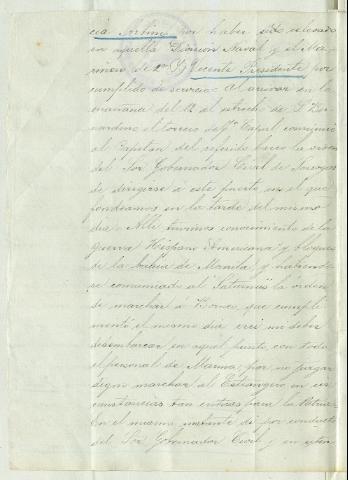 por haber sido relevado
en aquella Division Naval y el Ma-
rinero de 2ª Vicente Presidente por
cumplido de servicio. Al arrivar en la
mañana del 12 al estrecho de S. Ber-
nardino el torrero de comunicó
al Capitan del referido barco la orden
del Sor Gobernador Civil de Sorsogon
de dirigirse á este puerto, en el que
fondeamos en la tarde del mismo
dia. Alli tuvimos conocimiento de la
guerra Hispano Americana y bloqueo
de la bahia de Manila y habiendo
se comunicado al "Saturnus" la órden
de marchar á que cumpli
mentó el mismo dia crei un deber
desembarcar en aquel punto, con todo
el personal de Marina, por no juzgar
digno marchar al Estrangero en cir
cunstancias tan críticas para la Patria.
En el mismo instante di por conducto
del Sor Gobernador Civil y en